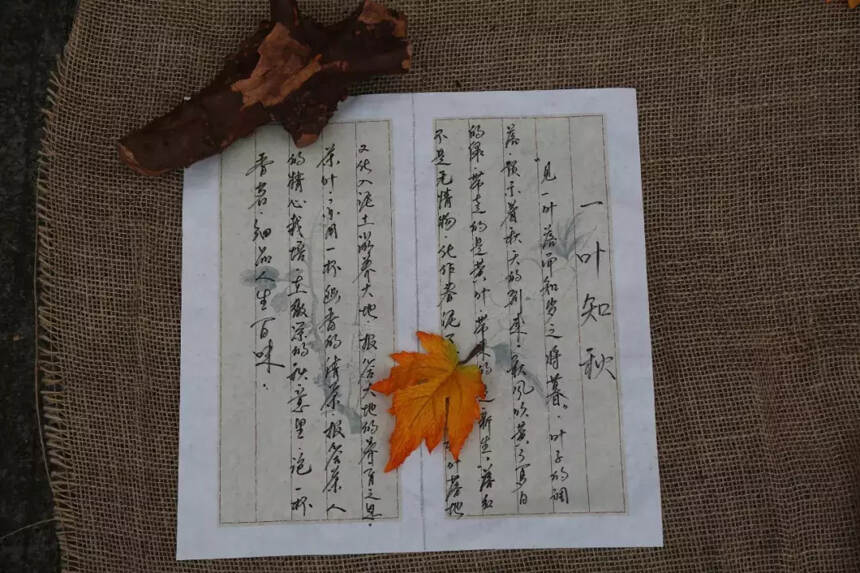 一叶知秋
“见一叶落而知岁之将暮”。叶子的调
落,预示着秋天的到来,秋风吹黄了夏日
的绿,带走的是黄叶,带来的是新生,落红
不是无情物,化作春泥 叶落地
又化入泥土滋养大地,报答大地的养育之恩。
茶叶,亦用一杯幽香的清茶,报答茶人
的精心栽培,在微深的秋意里,泡一杯
香茗,细品人生百味。